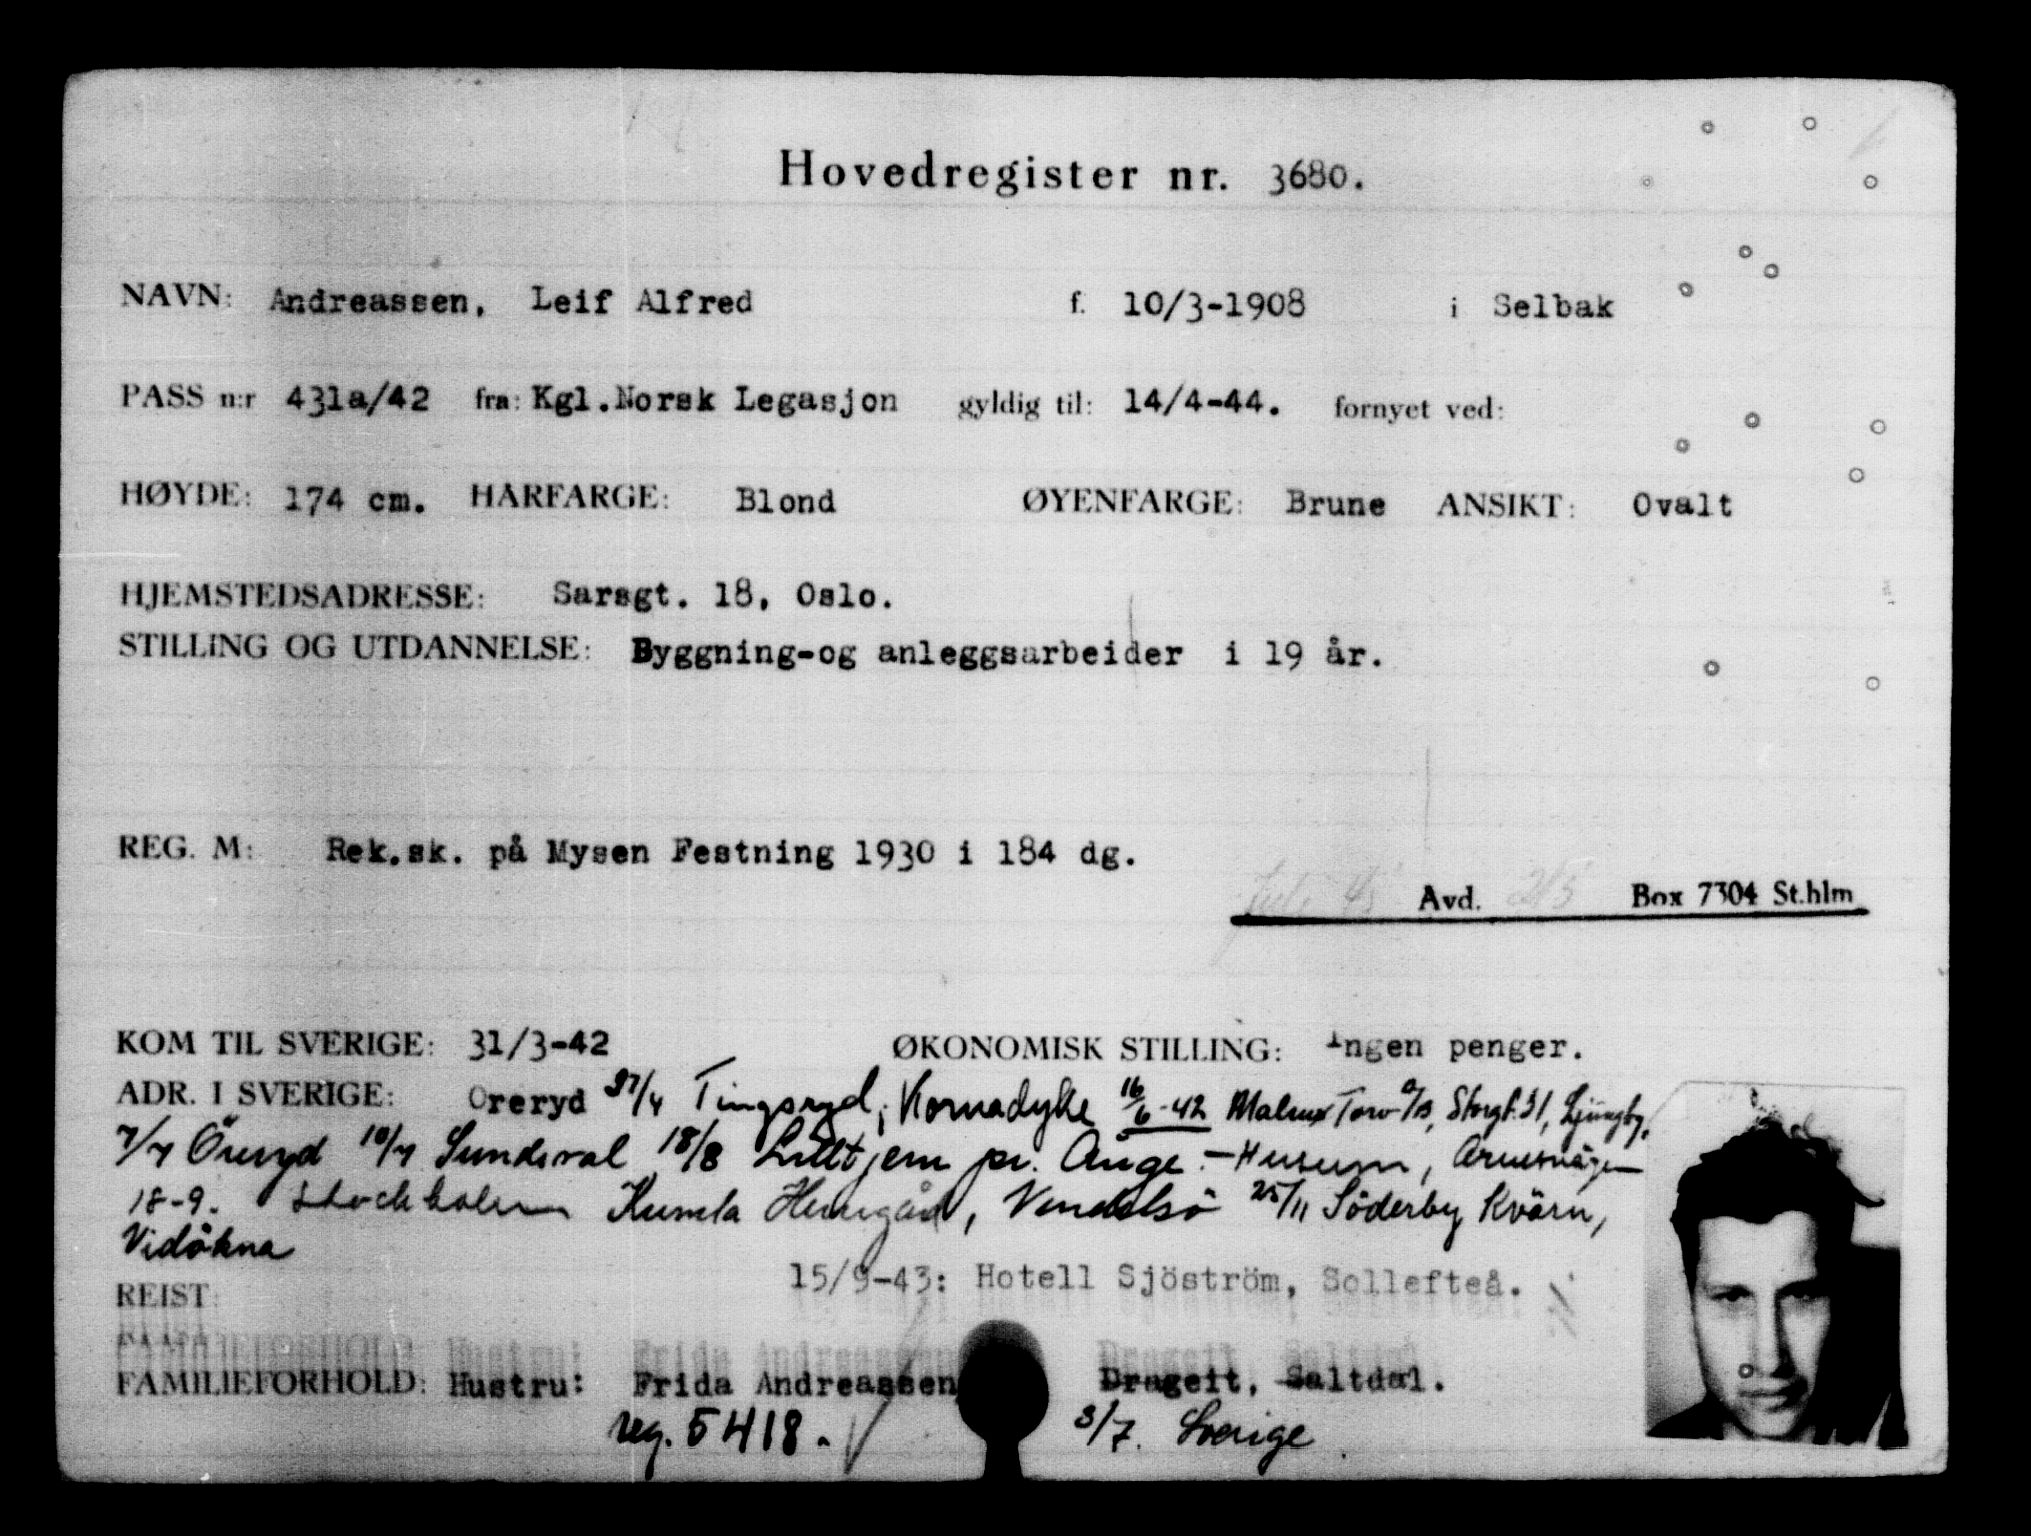 Hovedregister nr. 3680.
NAVN: Andreassen, Leif Alfred f. 10/3-1908 i Selbak
PASS n:r 431a/42 fra: Kgl.Norsk Legasjon gyldig til: 14/4-44. fornyet ved:
HØYDE: 174 cm. HÅRFARGE: Blond ØYENFARGE: Brune ANSIKT: Ovalt
HJEMSTEDSADRESSE: Sarsgt. 18, Oslo.
STILLING OG UTDANNELSE: Byggning-og anleggsarbeider i 19 år.
REG. M: Rek.sk. på Mysen Festning 1930 i 184 dg.
Avd. 215 Box 7304 St.hlm
KOM TIL SVERIGE: 31/3-42 ØKONOMISK STILLING: Ingen penger.
ADR. I SVERIGE: Öreryd 27/4 Tingsryd, 16/6-42 Torv A/B, Storgt. 31, Ljungby,
7/7 Öreryd 10/7 Sundsval 18/8 Lilltjern pr. Ånge. - Husum,
18-9. Stockholm Kumla Herrgård, Vendelsö 25/11 Söderby Kvarn,
Vidökna
15/9-43: Hotell Sjöström, Sollefteå.
REIST:
FAMILIEFORHOLD: Hustru: Frida Andreassen, Drageit, Saltdal.
reg. 5418. 3/7. Sverige